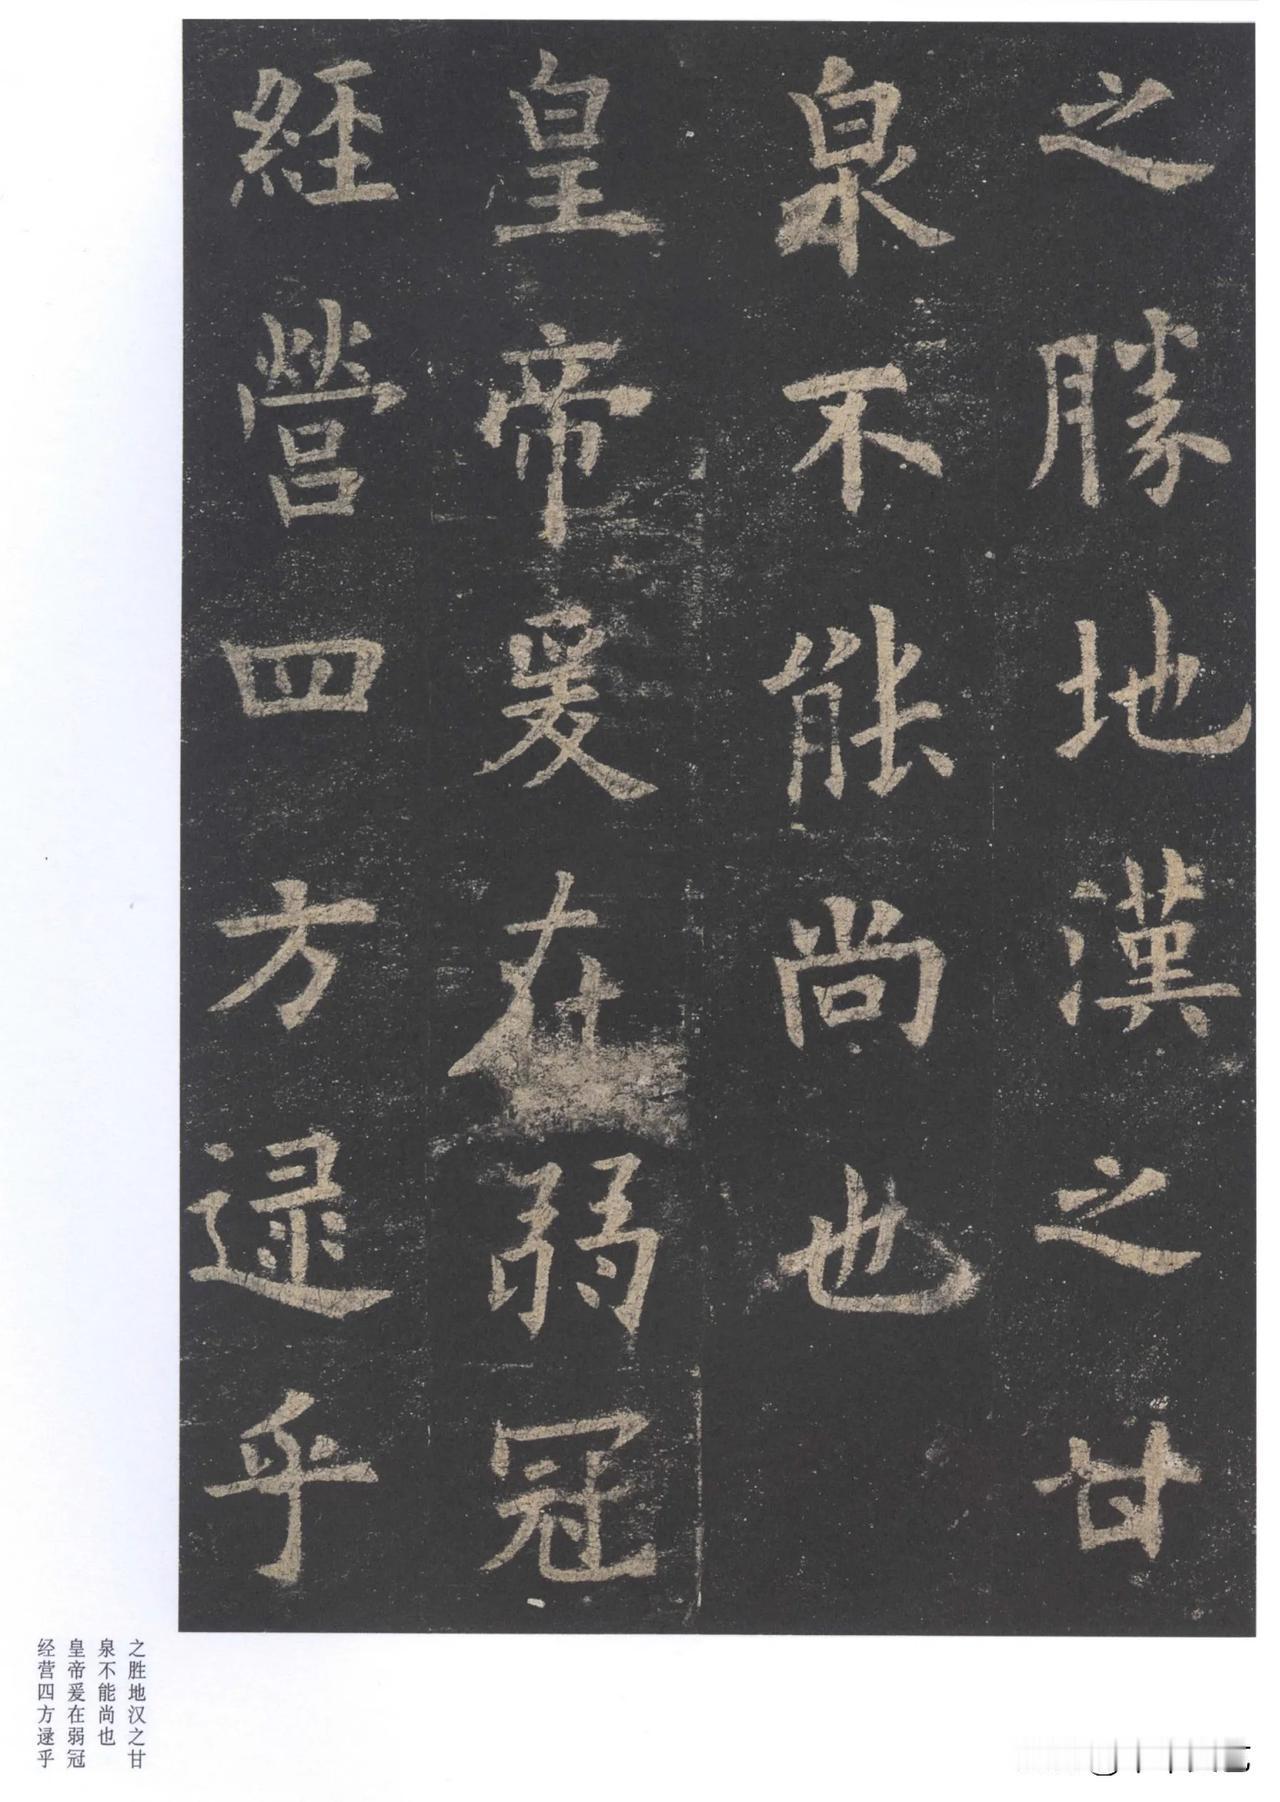 之勝地漢之甘
泉不能尚也
皇帝爰在弱冠
經營四方逯乎
之胜地汉之甘
泉不能尚也
皇帝爰在弱冠
经营四方逯乎